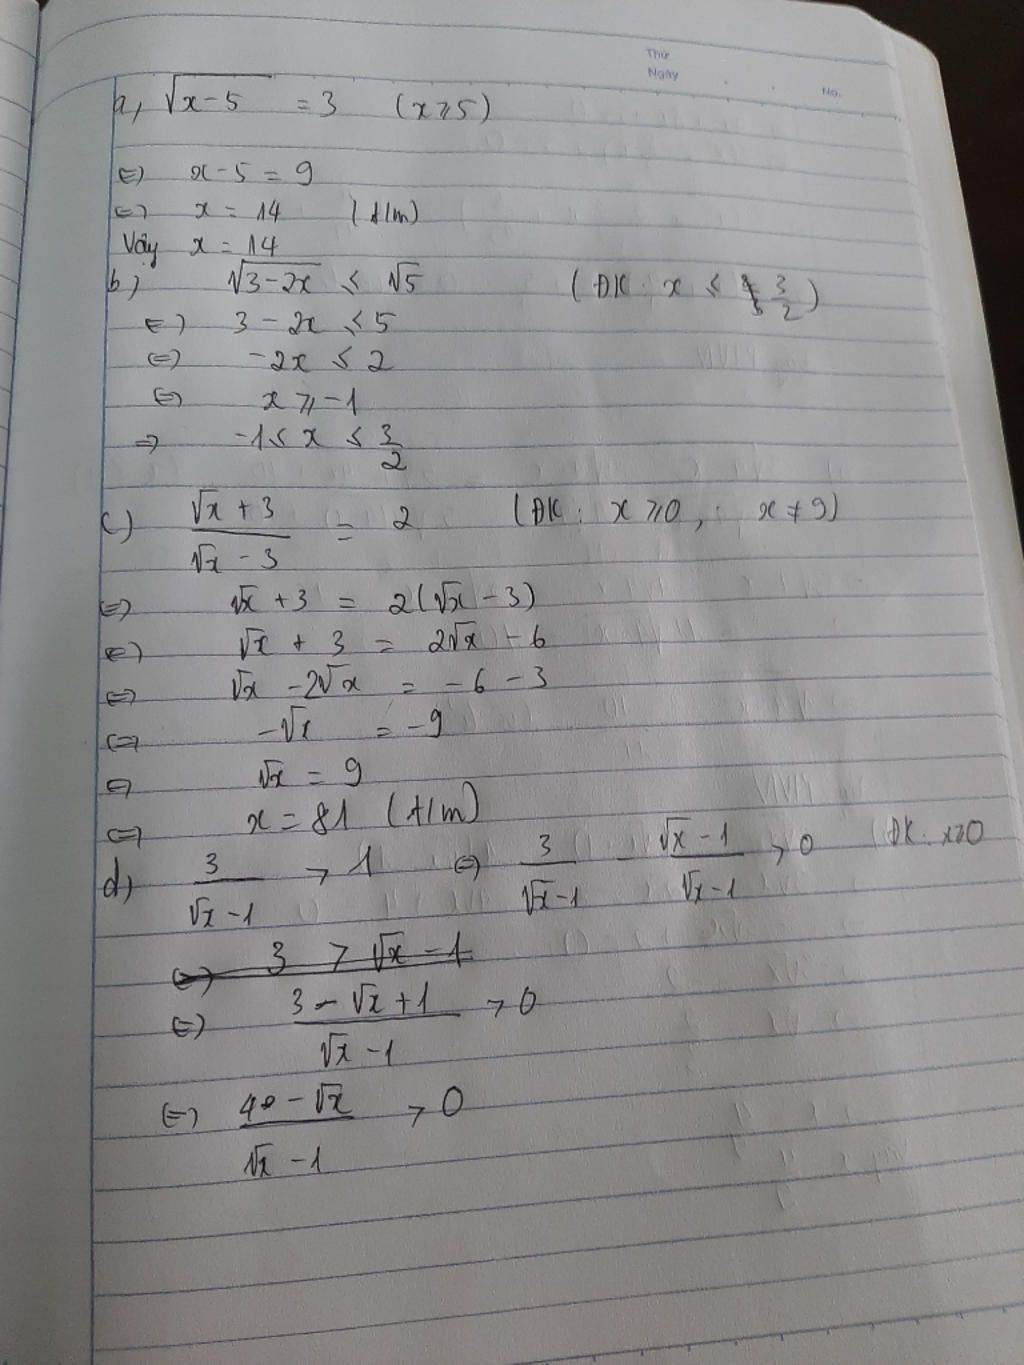 Thứ
Ngày
No.
a, √x-5 = 3 (x ≥ 5)
⇔) x-5 = 9
⇔ x = 14 (t/m)
Vậy x = 14
b) √3-2x ≤ √5 (ĐK: x ≤ 3/2)
⇔) 3 - 2x ≤ 5
⇔ -2x ≤ 2
⇔ x ≥ -1
⇒ -1 ≤ x ≤ 3/2
c) (√x + 3)/(√x - 3) = 2 (ĐK: x ≥ 0, x ≠ 9)
⇔ √x + 3 = 2(√x - 3)
⇔ √x + 3 = 2√x - 6
⇔ √x - 2√x = -6 - 3
⇔ -√x = -9
⇔ √x = 9
⇔ x = 81 (t/m)
d) 3/(√x-1) > 1 ⇔ 3/(√x-1) - (√x-1)/(√x-1) > 0 (ĐK: x ≥ 0
⇔) 3 > √x - 1
⇔) (3 - √x + 1)/(√x - 1) > 0
⇔) (4 - √x)/(√x - 1) > 0